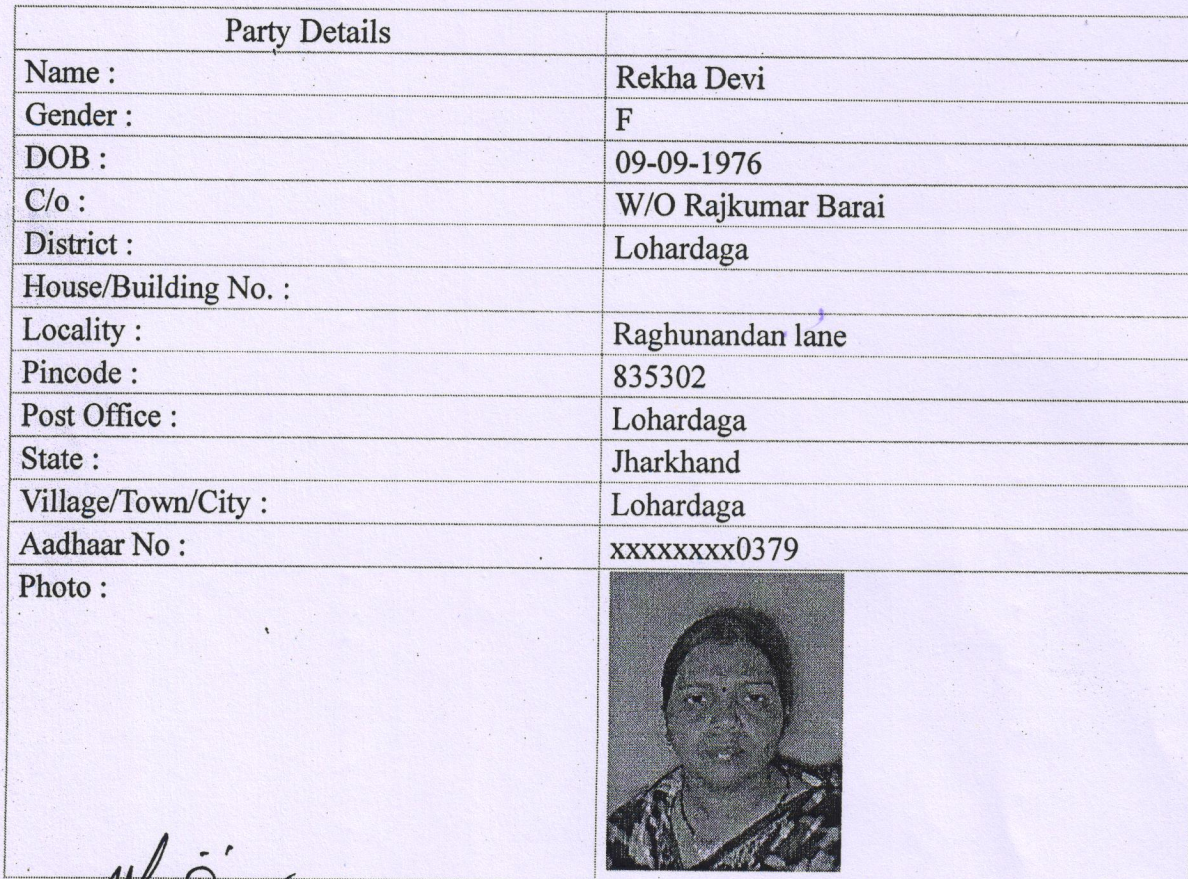 Party Details
Name : Rekha Devi
Gender : F
DOB : 09-09-1976
C/o : W/O Rajkumar Barai
District : Lohardaga
House/Building No. :
Locality : Raghunandan lane
Pincode : 835302
Post Office : Lohardaga
State : Jharkhand
Village/Town/City : Lohardaga
Aadhaar No : xxxxxxxx0379
Photo :